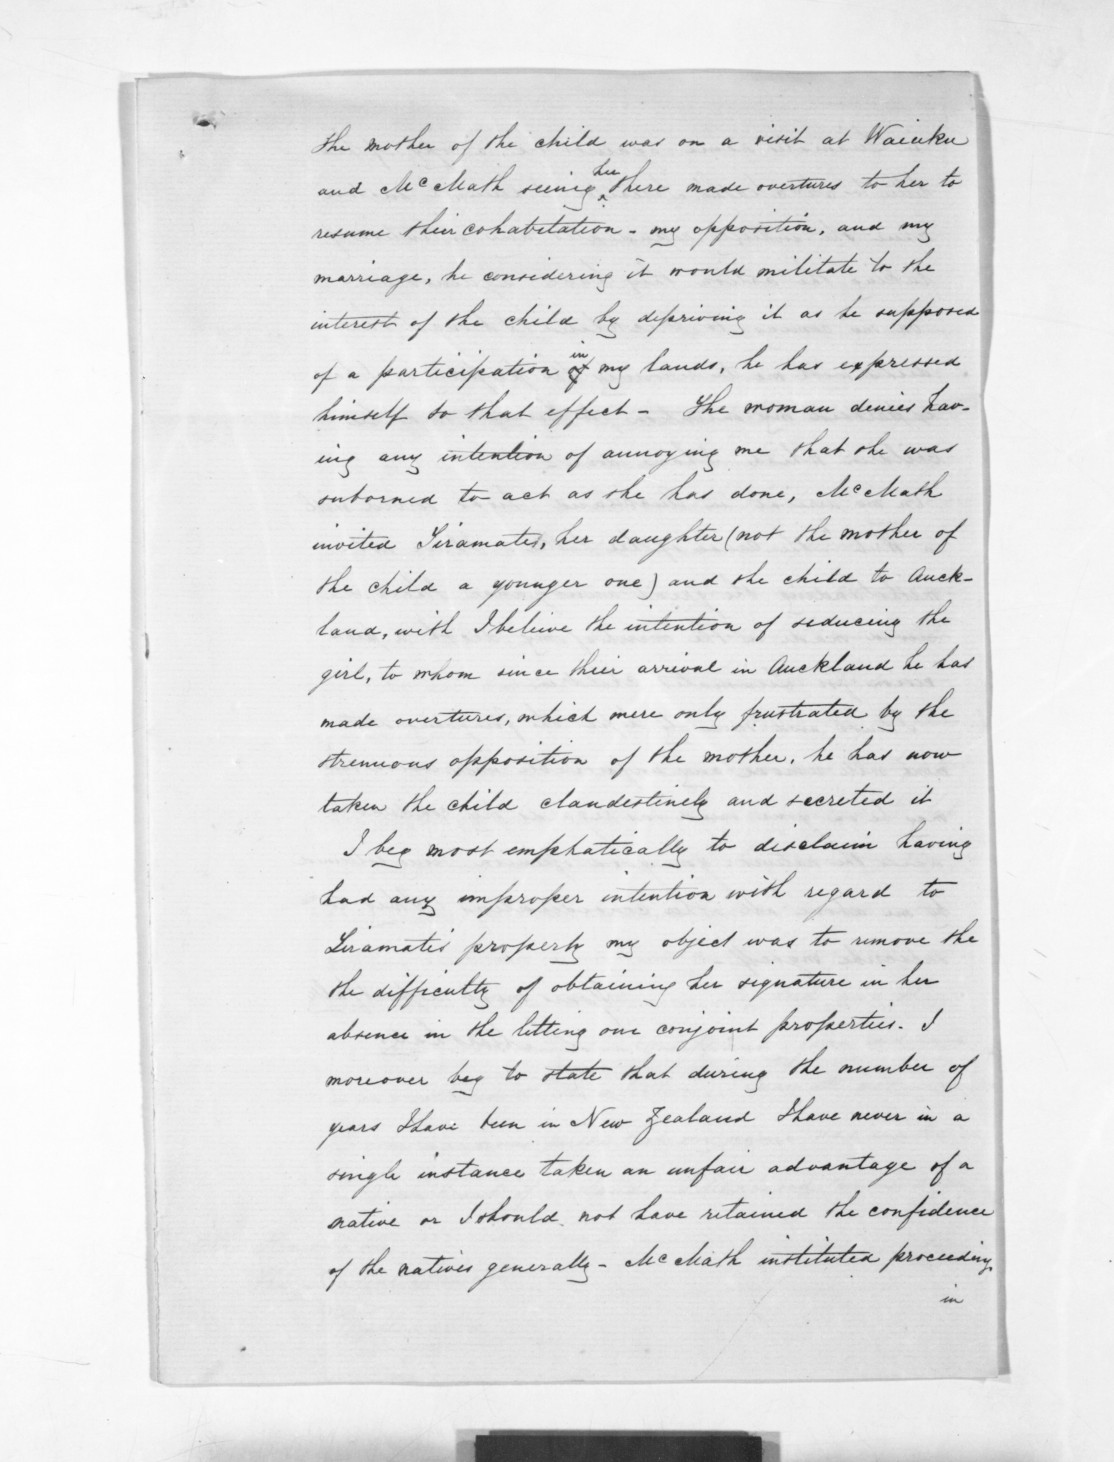 the mother of the child was on a visit at Waiuku
and McMath seeing her there made overtures to her to
resume their cohabitation - my opposition, and my
marriage, he considering it would militate to the
interest of the child by depriving it as he supposed
of a participation in my lands, he has expressed
himself to that effect - The woman denies hav-
ing any intention of annoying me that she was
suborned to act as she has done, McMath
invited Tiramate, her daughter (not the mother of
the child a younger one) and the child to Auck-
land, with I beleive the intention of seducing the
girl, to whom since their arrival in Auckland he has
made overtures, which were only frustrated by the
strenuous opposition of the mother. he has now
taken the child clandestinely and secreted it
I beg most emphatically to disclaim having
had any improper intention with regard to
Tiramate's property my object was to remove the
the difficulty of obtaining her signature in her
absence in the letting our conjoint properties. I
moreover beg to state that during the number of
years I have been in New Zealand I have never in a
single instance taken an unfair advantage of a
native or I should not have retained the confidence
of the natives generally - McMath instituted proceedings
in